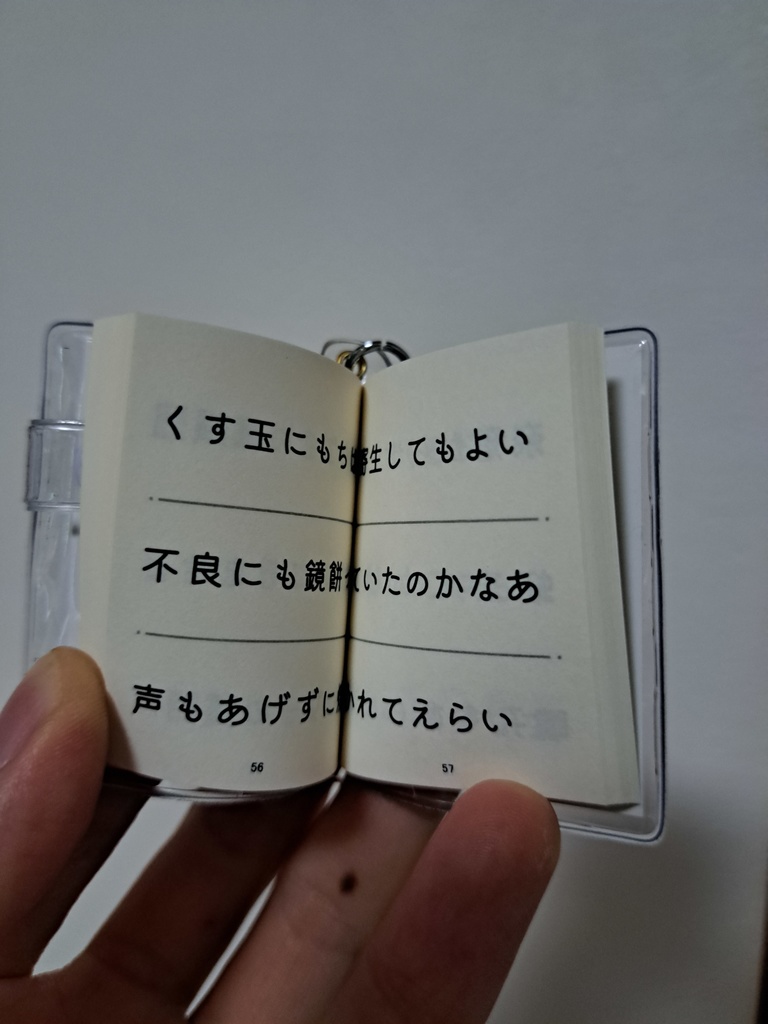 くす玉にもちは寄生してもよい
不良にも鏡餅ていたのかなあ
声もあげずに れてえらい
56
57